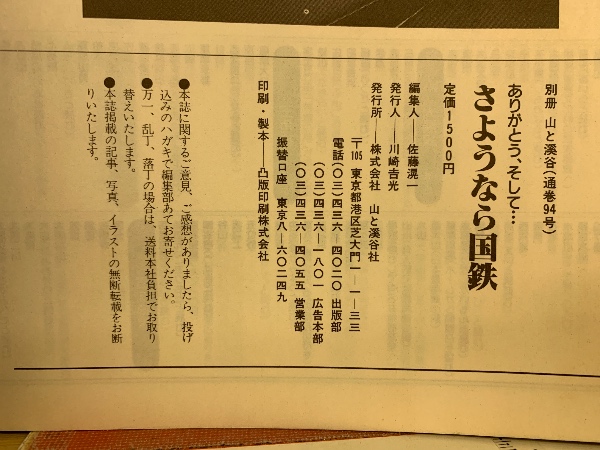 別冊 山と溪谷(通巻94号)
ありがとう、そして…
さようなら国鉄
定価1500円
編集人——佐藤滉一
発行人——川崎吉光
発行所——株式会社 山と溪谷社
〒105 東京都港区芝大門一—一—三三
電話(〇三)四三六—四〇二〇 出版部
(〇三)四三六—一八〇一 広告本部
(〇三)四三六—四〇五五 営業部
振替口座 東京八—六〇二四九
印刷・製本——凸版印刷株式会社
●本誌に関するご意見、ご感想がありましたら、投げ
込みのハガキで編集部あてお寄せください。
●万一、乱丁、落丁の場合は、送料本社負担でお取り
替えいたします。
●本誌掲載の記事、写真、イラストの無断転載をお断
りいたします。